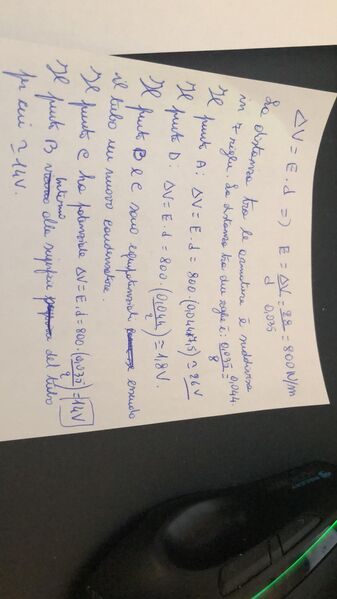 ΔV = E.d => E = ΔV/d = 28/0,035 = 800 N/m
La distanza tra le armature è suddivisa
in 7 righe. La distanza tra due righe è: 0,035/8 = 0,0044
Il punto A: ΔV = E.d = 800.(0,0044.7,5) ≃ 26V
Il punto D: ΔV = E.d = 800.(0,044/2) ≃ 1,8V.
Il punto B e C sono equipotenziali essendo
il tubo un nuovo condensatore.
Il punto C ha potenziale ΔV = E.d = 800.(0,035/2) = 14V
Il punto B interno alla superfice del tubo
per cui ≃ 14V.